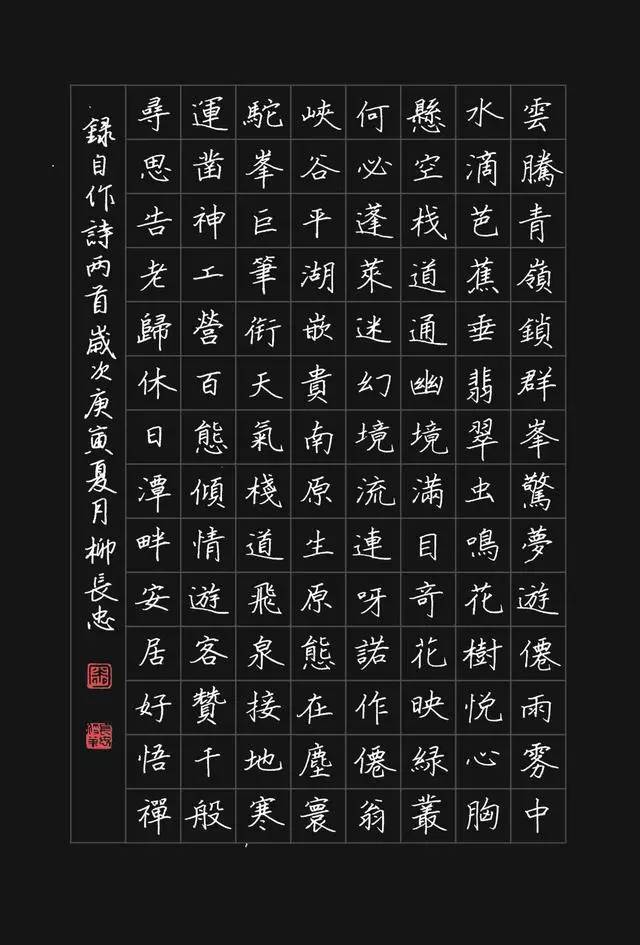 雲騰青嶺鎖群峯驚夢遊僊雨雾中
水滴芭蕉垂翡翠虫鳴花樹悅心胸
懸空栈道通幽境滿目奇花映綠叢
何必蓬萊迷幻境流連呀諾作僊翁
峽谷平湖嵌貴南原生原態在塵寰
駝峯巨筆銜天氣棧道飛泉接地寒
運凿神工營百態傾情遊客贊千般
尋思告老歸休日潭畔安居好悟禪
録自作詩两首歲次庚寅夏月柳長忠